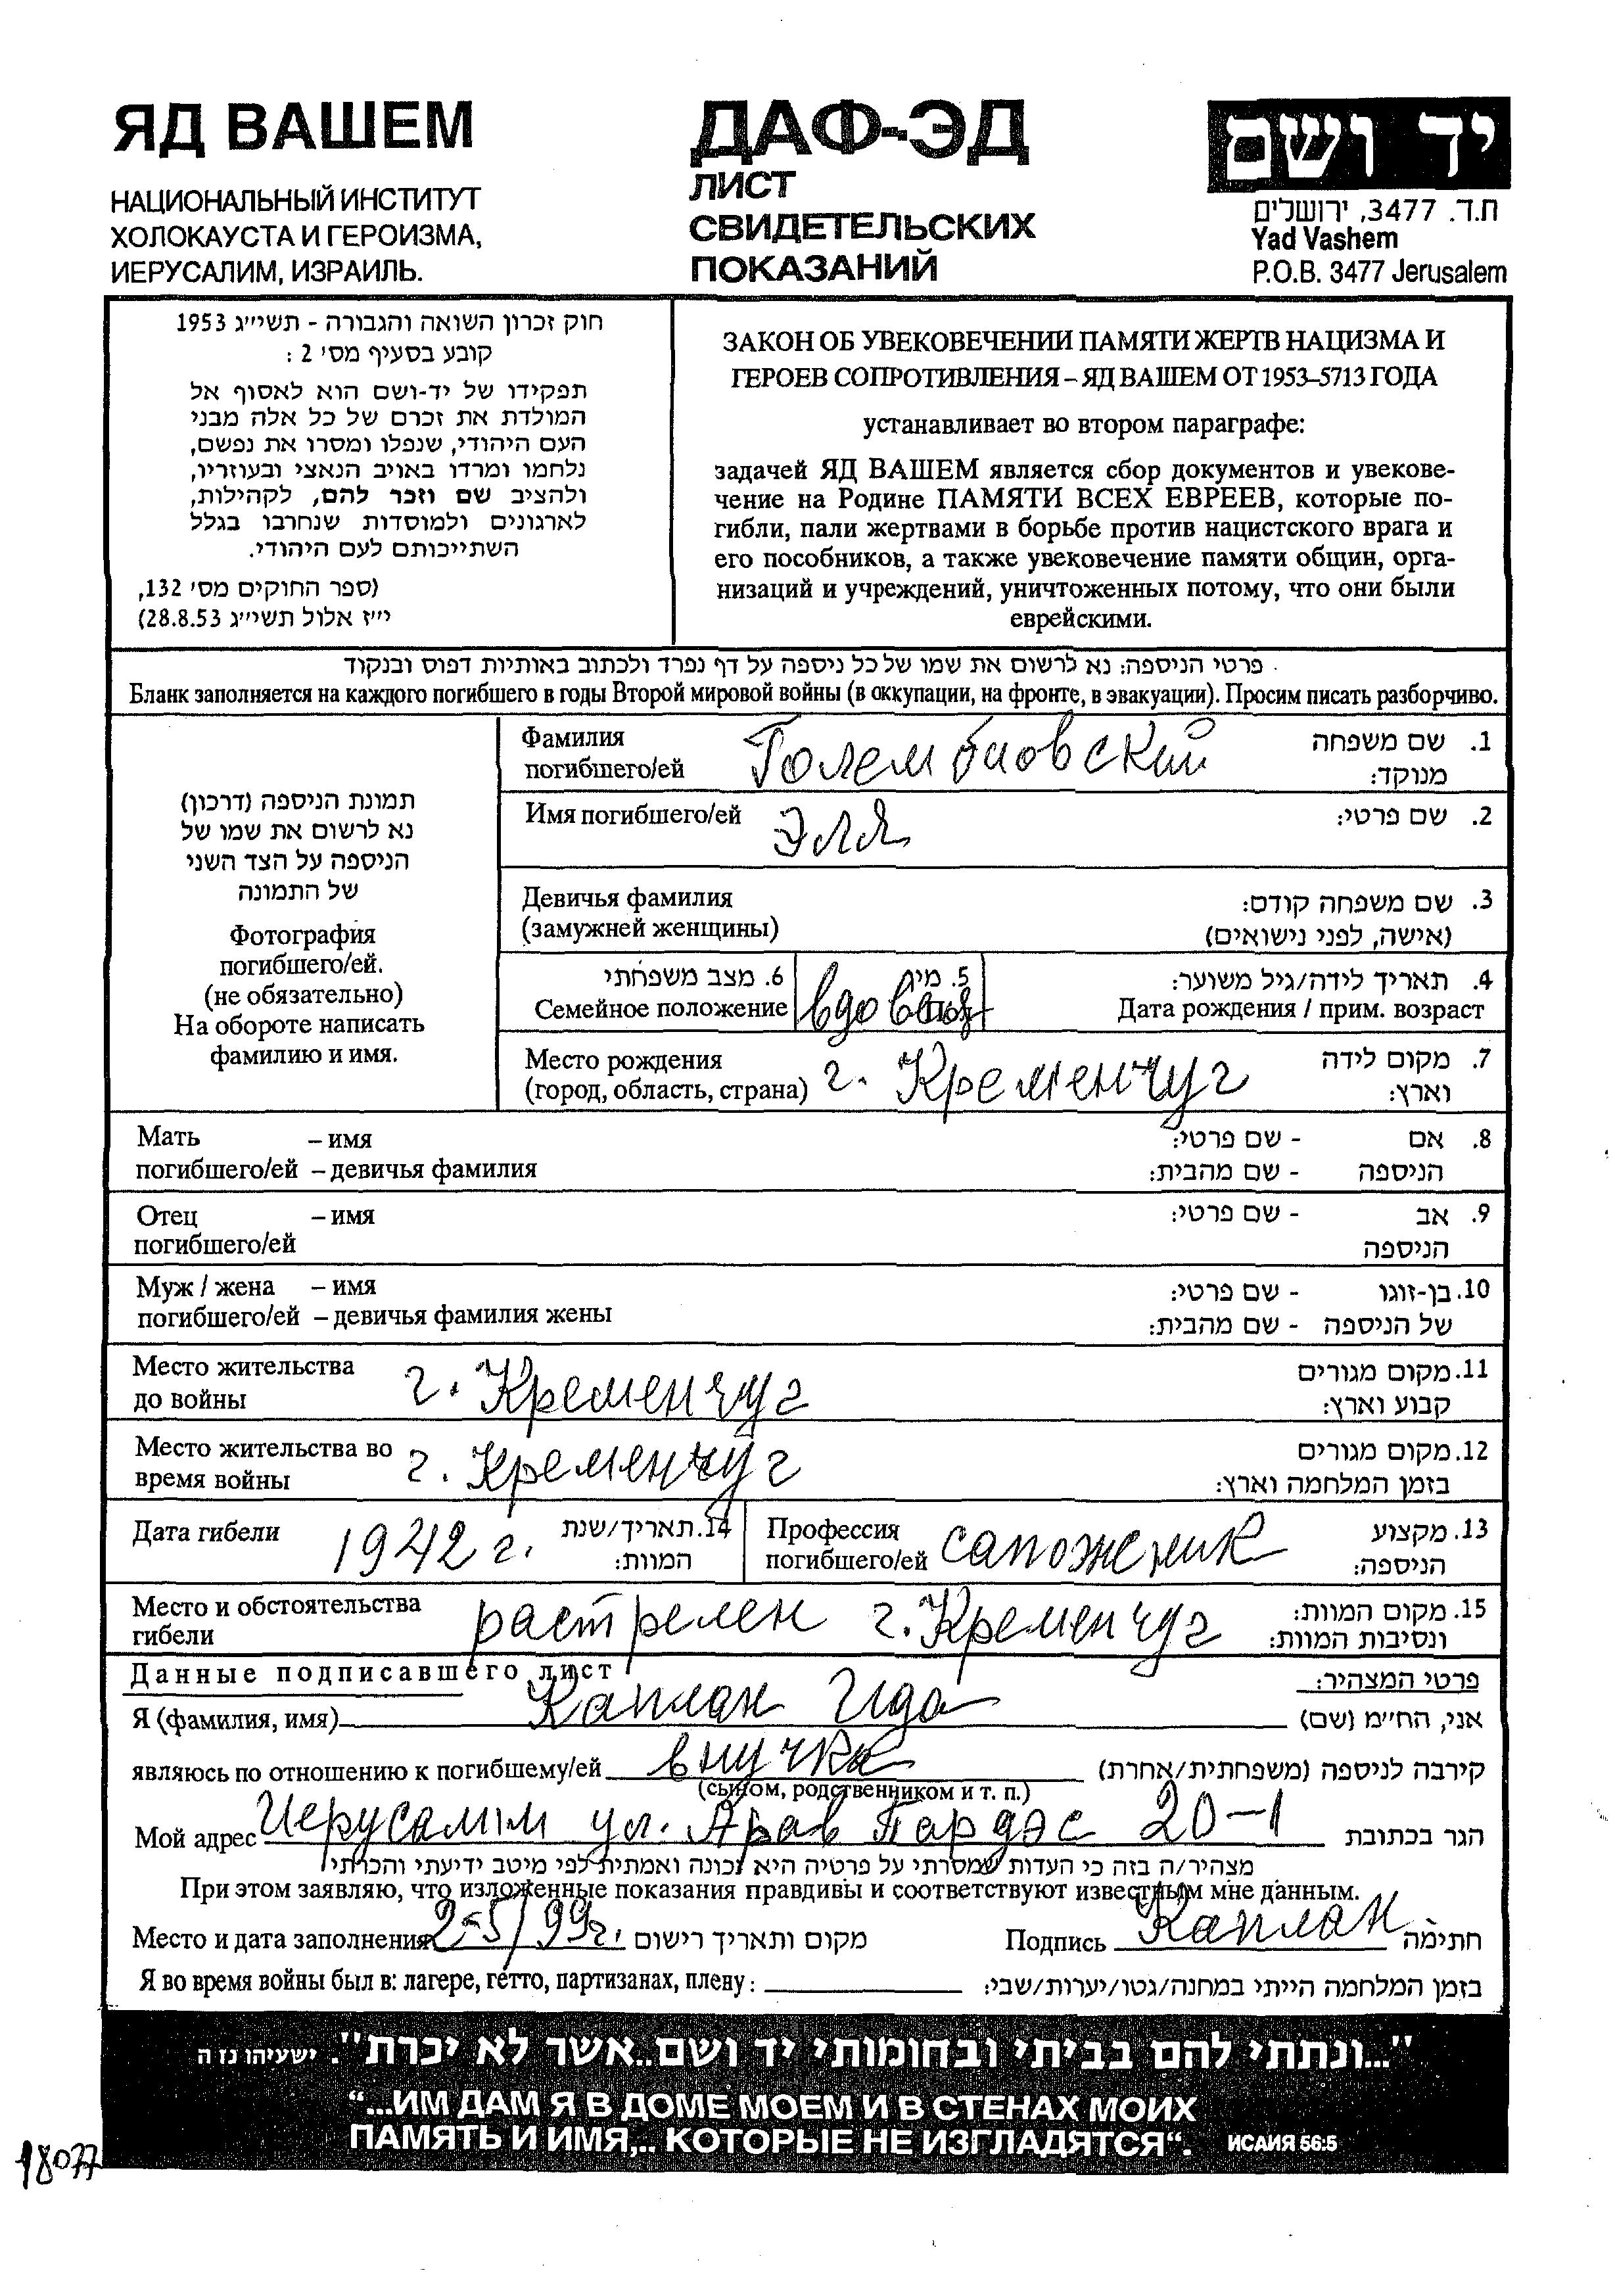 ЯД ВАШЕМ
НАЦИОНАЛЬНЫЙ ИНСТИТУТ
ХОЛОКАУСТА И ГЕРОИЗМА,
ИЕРУСАЛИМ, ИЗРАИЛЬ.
ДАФ-ЭД
ЛИСТ
СВИДЕТЕЛЬСКИХ
ПОКАЗАНИЙ
יד ושם
ת.ד. 3477, ירושלים
Yad Vashem
P.O.B. 3477 Jerusalem
חוק זכרון השואה והגבורה - תשי״ג 1953
קובע בסעיף מס׳ 2 :
תפקידו של יד-ושם הוא לאסוף אל
המולדת את זכרם של כל אלה מבני
העם היהודי, שנפלו ומסרו את נפשם,
נלחמו ומרדו באויב הנאצי ובעוזריו,
ולהציב שם וזכר להם, לקהילות,
לארגונים ולמוסדות שנחרבו בגלל
השתייכותם לעם היהודי.
(ספר החוקים מס׳ 132,
י״ז אלול תשי״ג 28.8.53)
ЗАКОН ОБ УВЕКОВЕЧЕНИИ ПАМЯТИ ЖЕРТВ НАЦИЗМА И
ГЕРОЕВ СОПРОТИВЛЕНИЯ – ЯД ВАШЕМ ОТ 1953–5713 ГОДА
устанавливает во втором параграфе:
задачей ЯД ВАШЕМ является сбор документов и увекове-
чение на Родине ПАМЯТИ ВСЕХ ЕВРЕЕВ, которые по-
гибли, пали жертвами в борьбе против нацистского врага и
его пособников, а также увековечение памяти общин, орга-
низаций и учреждений, уничтоженных потому, что они были
еврейскими.
פרטי הניספה: נא לרשום את שמו של כל ניספה על דף נפרד ולכתוב באותיות דפוס ובנקוד
Бланк заполняется на каждого погибшего в годы Второй мировой войны (в оккупации, на фронте, в эвакуации). Просим писать разборчиво.
תמונת הניספה (דרכון)
נא לרשום את שמו של
הניספה על הצד השני
של התמונה
Фотография
погибшего/ей.
(не обязательно)
На обороте написать
фамилию и имя.
Фамилия
погибшего/ей Голембиовский
1. שם משפחה
מנוקד:
Имя погибшего/ей Элля 2. שם פרטי:
Девичья фамилия
(замужней женщины)
3. שם משפחה קודם:
(אישה, לפני נישואים)
6. מצב משפחתי
Семейное положение
вдовец
5. מין
Пол
4. תאריך לידה/גיל משוער:
Дата рождения / прим. возраст
Место рождения
(город, область, страна) г. Кременчуг
7. מקום לידה
וארץ:
Мать – имя
погибшего/ей – девичья фамилия
8. אם - שם פרטי:
הניספה - שם מהבית:
Отец – имя
погибшего/ей
9. אב - שם פרטי:
הניספה
Муж / жена – имя
погибшего/ей – девичья фамилия жены
10. בן-זוגו - שם פרטי:
של הניספה - שם מהבית:
Место жительства
до войны г. Кременчуг
11. מקום מגורים
קבוע וארץ:
Место жительства во
время войны г. Кременчуг
12. מקום מגורים
בזמן המלחמה וארץ:
Дата гибели 1942 г.
14. תאריך/שנת
המוות:
Профессия
погибшего/ей сапожник
13. מקצוע
הניספה:
Место и обстоятельства
гибели растрелен г. Кременчуг
15. מקום המוות:
ונסיבות המוות:
Данные подписавшего лист פרטי המצהיר:
Я (фамилия, имя) Каплан Ида אני, הח״מ (שם)
являюсь по отношению к погибшему/ей внучка קירבה לניספה (משפחתית/אחרת)
(сыном, родственником и т. п.)
Мой адрес Иерусалим ул. Арав Пардэс 20-1 הגר בכתובת
מצהיר/ה בזה כי העדות שמסרתי על פרטיה היא נכונה ואמתית לפי מיטב ידיעתי והכרתי
При этом заявляю, что изложенные показания правдивы и соответствуют известным мне данным.
Место и дата заполнения 2-5/99г. מקום ותאריך רישום Подпись Каплан חתימה
Я во время войны был в: лагере, гетто, партизанах, плену: בזמן המלחמה הייתי במחנה/גטו/יערות/שבי:
"...ונתתי להם בביתי ובחומותי יד ושם..אשר לא יכרת". ישעיהו נז ה
“...ИМ ДАМ Я В ДОМЕ МОЕМ И В СТЕНАХ МОИХ
ПАМЯТЬ И ИМЯ,.. КОТОРЫЕ НЕ ИЗГЛАДЯТСЯ“. ИСАИЯ 56:5
18077